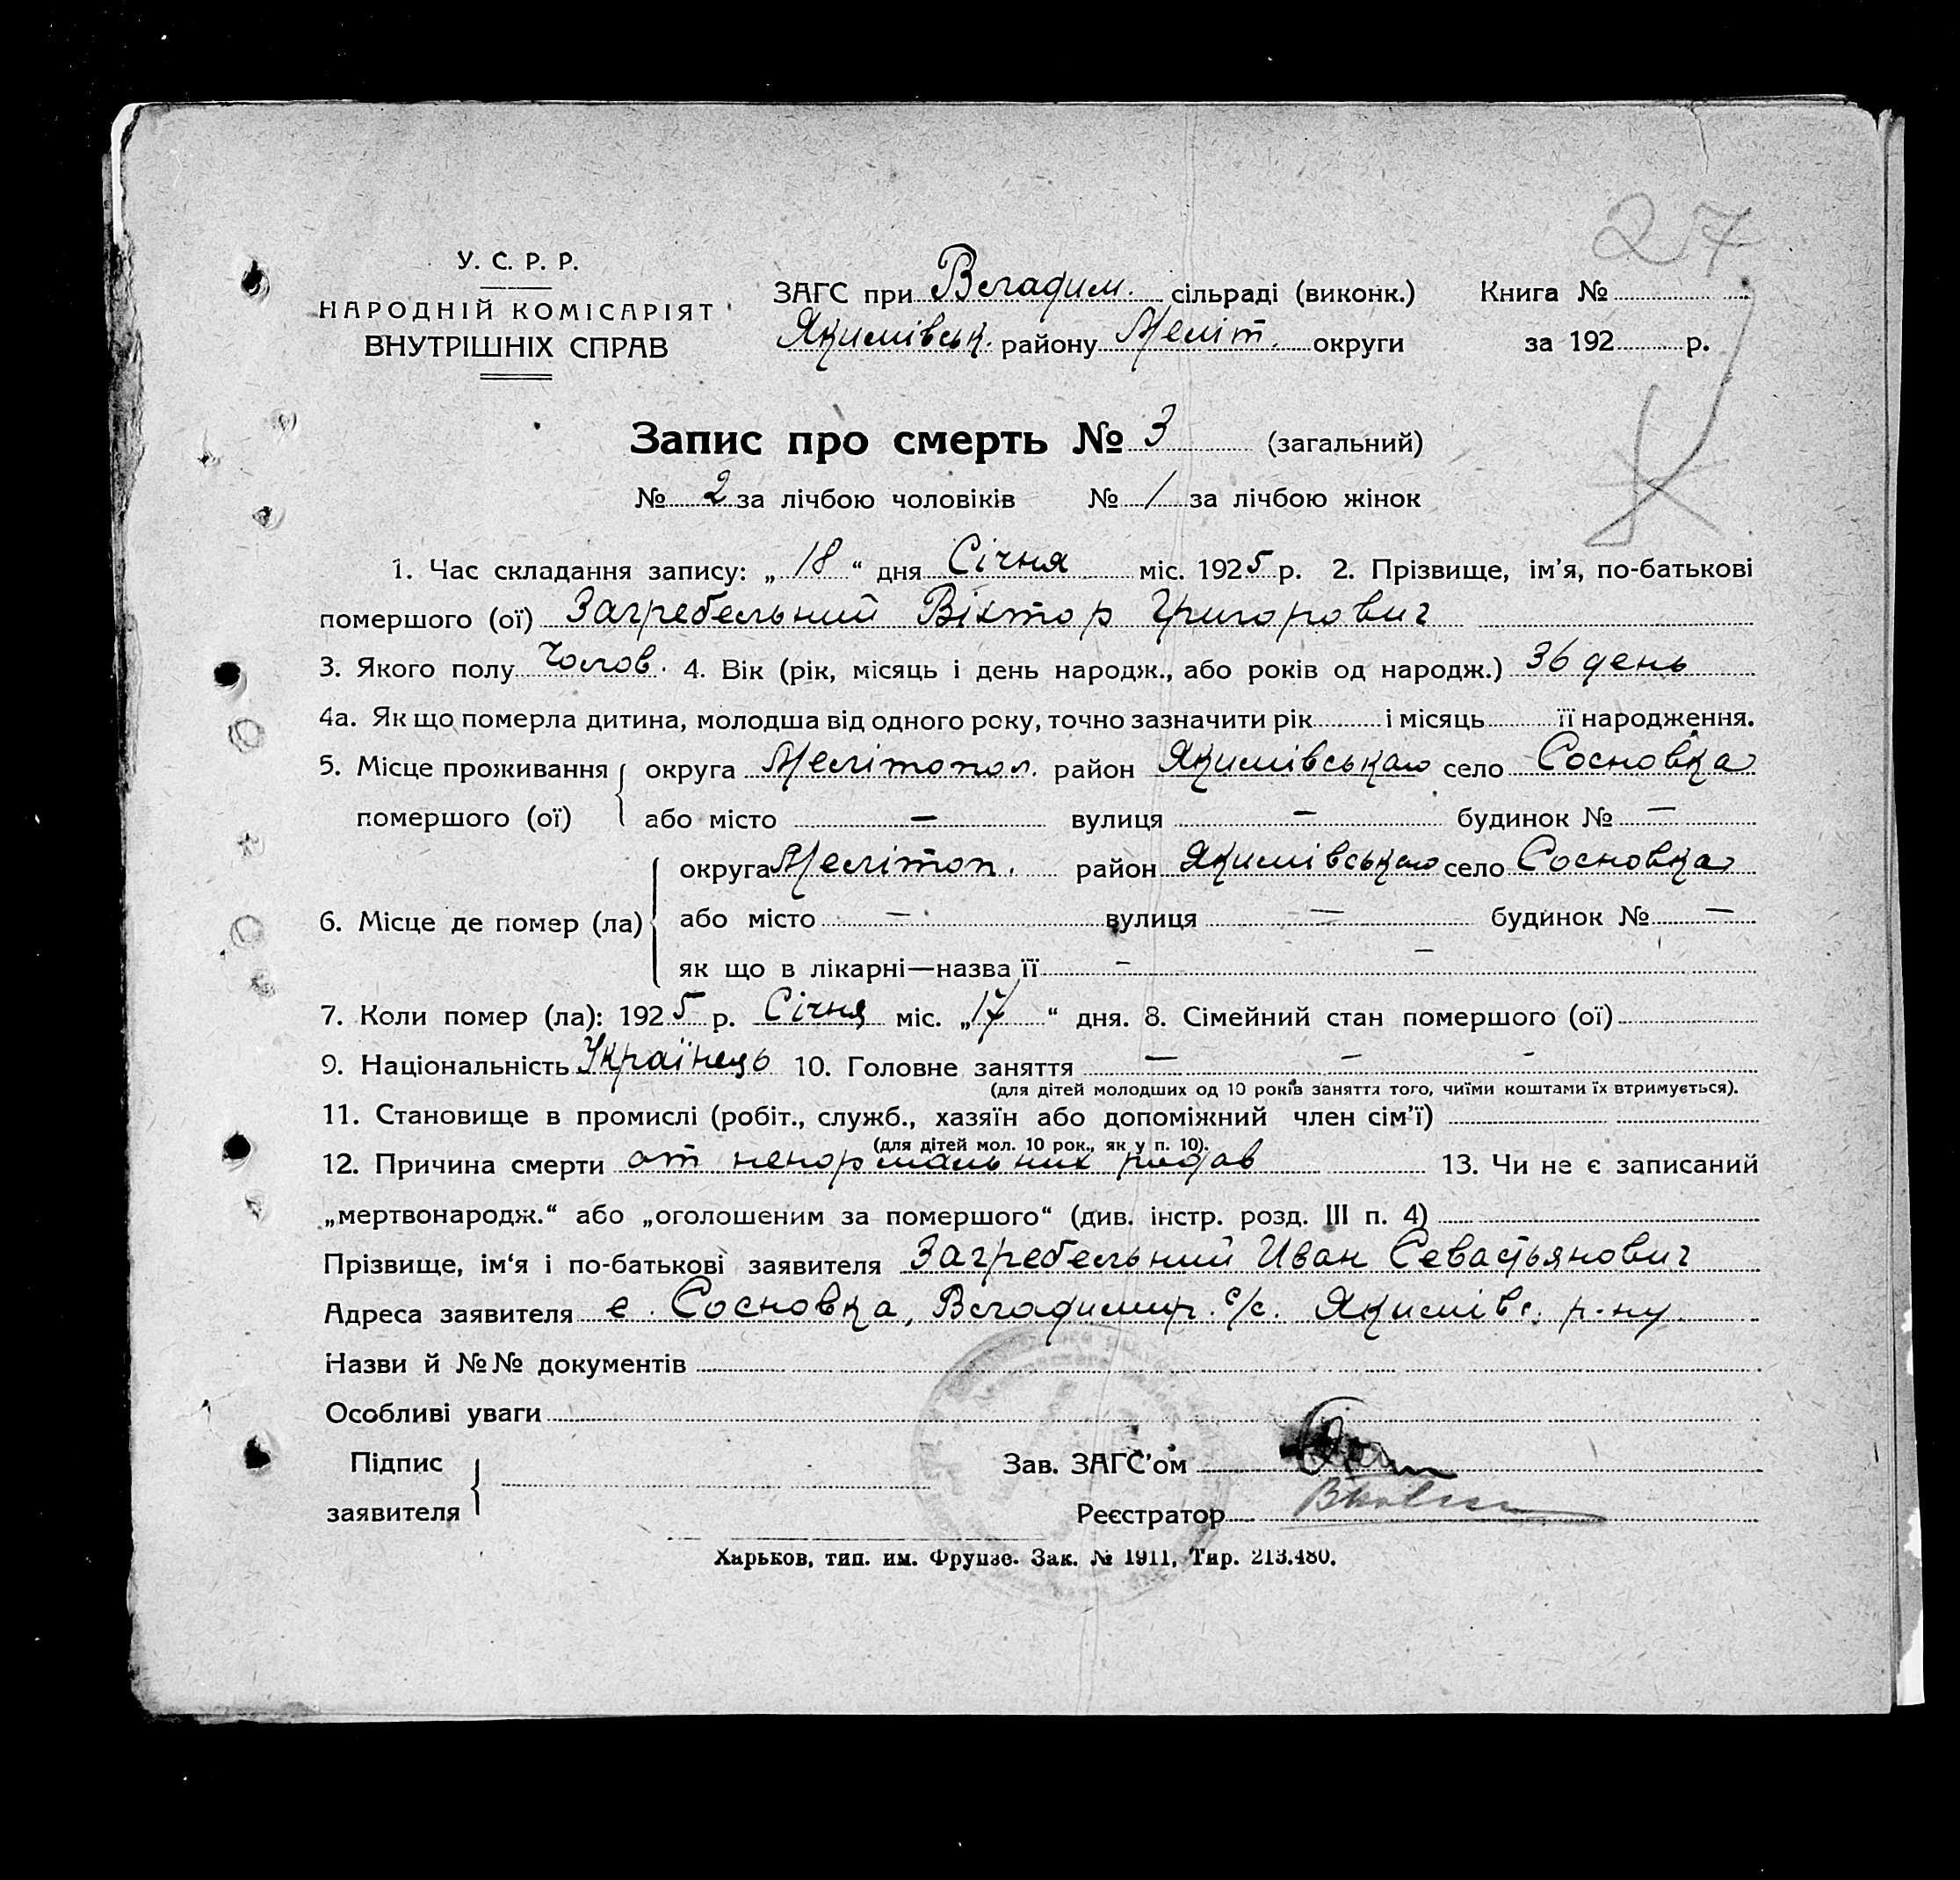 27
У. С. Р. Р.
НАРОДНІЙ КОМІСАРІЯТ
ВНУТРІШНІХ СПРАВ
ЗАГС при Владим. сільраді (виконк.) Книга №
Якимівськ. району Меліт. округи за 192 р.
Запис про смерть № 3 (загальний)
№ 2 за лічбою чоловіків № 1 за лічбою жінок
1. Час складання запису: „18“ дня Січня міс. 1925 р. 2. Прізвище, ім'я, по-батькові
помершого (ої) Загребельний Віктор Григорович
3. Якого полу Чолов. 4. Вік (рік, місяць і день народж., або років од народж.) 36 день
4а. Як що померла дитина, молодша від одного року, точно зазначити рік і місяць її народження.
5. Місце проживання округа Мелітопол. район Якимівського село Сосновка
помершого (ої) або місто — вулиця — будинок № —
округа Мелітоп. район Якимівського село Сосновка
6. Місце де помер (ла) або місто — вулиця — будинок № —
як що в лікарні—назва її — —
7. Коли помер (ла): 1925 р. Січня міс. „17“ дня. 8. Сімейний стан помершого (ої)
9. Національність Українець 10. Головне заняття — — -
(для дітей молодших од 10 років заняття того, чиїми коштами їх втримується).
11. Становище в промислі (робіт., служб., хазяїн або допоміжний член сім'ї)
(для дітей мол. 10 рок., як у п. 10).
12. Причина смерти от ненормальних родов 13. Чи не є записаний
„мертвонародж.“ або „оголошеним за помершого“ (див. інстр. розд. III п. 4)
Прізвище, ім'я і по-батькові заявителя Загребельний Иван Севастьянович
Адреса заявителя с. Сосновка, Владимир. с/с. Якимівс. р-ну
Назви й №№ документів
Особливі уваги
Підпис
заявителя
Зав. ЗАГС'ом
Реєстратор
Харьков, тип. им. Фрунзе. Зак. № 1911, Тир. 213.480.